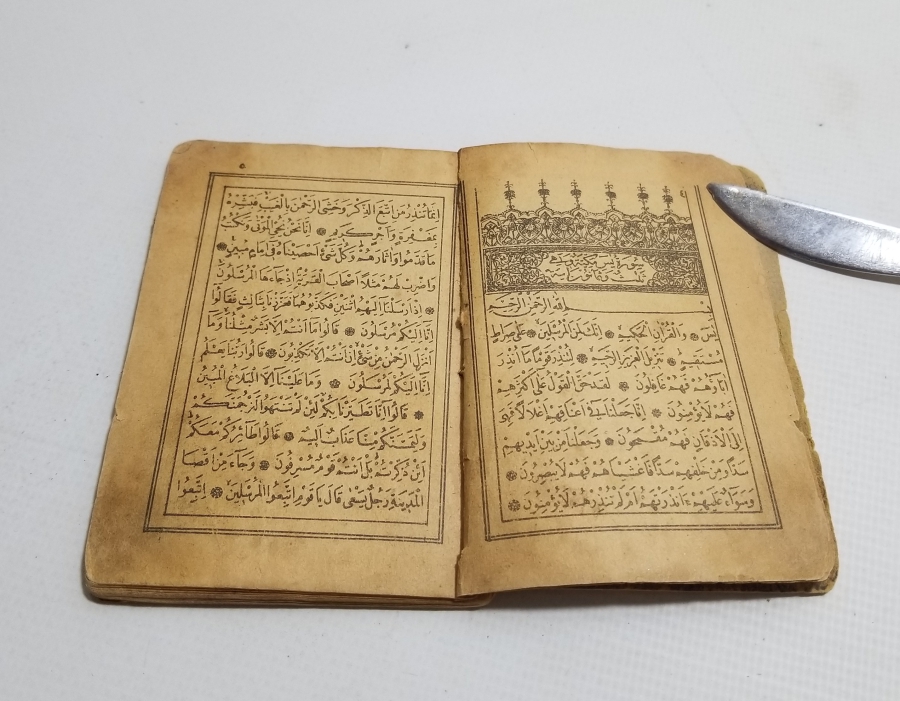 ٤
سورة يس مكية وهي
ثلث وثمانون آية
بسم الله الرحمن الرحيم
يٰسٓ ۞ وَالْقُرْاٰنِ الْحَكِيمِ ۞ اِنَّكَ لَمِنَ الْمُرْسَلِينَ ۞ عَلٰى صِرَاطٍ
مُسْتَقِيمٍ ۞ تَنْزِيلَ الْعَزِيزِ الرَّحِيمِ ۞ لِتُنْذِرَ قَوْمًا مَا اُنْذِرَ
اٰبَاؤُهُمْ فَهُمْ غَافِلُونَ ۞ لَقَدْ حَقَّ الْقَوْلُ عَلٰى اَكْثَرِهِمْ
فَهُمْ لَا يُؤْمِنُونَ ۞ اِنَّا جَعَلْنَا فِى اَعْنَاقِهِمْ اَغْلَالًا فَهِىَ
اِلَى الْاَذْقَانِ فَهُمْ مُقْمَحُونَ ۞ وَجَعَلْنَا مِنْ بَيْنِ اَيْدِيهِمْ
سَدًّا وَمِنْ خَلْفِهِمْ سَدًّا فَاَغْشَيْنَاهُمْ فَهُمْ لَا يُبْصِرُونَ ۞
وَسَوَاءٌ عَلَيْهِمْ ءَاَنْذَرْتَهُمْ اَمْ لَمْ تُنْذِرْهُمْ لَا يُؤْمِنُونَ ۞
٥
اِنَّمَا تُنْذِرُ مَنِ اتَّبَعَ الذِّكْرَ وَخَشِىَ الرَّحْمٰنَ بِالْغَيْبِ فَبَشِّرْهُ
بِمَغْفِرَةٍ وَاَجْرٍ كَرِيمٍ ۞ اِنَّا نَحْنُ نُحْيِى الْمَوْتٰى وَنَكْتُبُ
مَا قَدَّمُوا وَاٰثَارَهُمْ وَكُلَّ شَىْءٍ اَحْصَيْنَاهُ فِى اِمَامٍ مُبِينٍ ۞
وَاضْرِبْ لَهُمْ مَثَلًا اَصْحَابَ الْقَرْيَةِ اِذْ جَاءَهَا الْمُرْسَلُونَ
۞ اِذْ اَرْسَلْنَا اِلَيْهِمُ اثْنَيْنِ فَكَذَّبُوهُمَا فَعَزَّزْنَا بِثَالِثٍ فَقَالُوا
اِنَّا اِلَيْكُمْ مُرْسَلُونَ ۞ قَالُوا مَا اَنْتُمْ اِلَّا بَشَرٌ مِثْلُنَا وَمَا
اَنْزَلَ الرَّحْمٰنُ مِنْ شَىْءٍ اِنْ اَنْتُمْ اِلَّا تَكْذِبُونَ ۞ قَالُوا رَبُّنَا يَعْلَمُ
اِنَّا اِلَيْكُمْ لَمُرْسَلُونَ ۞ وَمَا عَلَيْنَا اِلَّا الْبَلَاغُ الْمُبِينُ
۞ قَالُوا اِنَّا تَطَيَّرْنَا بِكُمْ لَئِنْ لَمْ تَنْتَهُوا لَنَرْجُمَنَّكُمْ
وَلَيَمَسَّنَّكُمْ مِنَّا عَذَابٌ اَلِيمٌ ۞ قَالُوا طَائِرُكُمْ مَعَكُمْ
اَئِنْ ذُكِّرْتُمْ بَلْ اَنْتُمْ قَوْمٌ مُسْرِفُونَ ۞ وَجَاءَ مِنْ اَقْصَا
الْمَدِينَةِ رَجُلٌ يَسْعٰى قَالَ يَا قَوْمِ اتَّبِعُوا الْمُرْسَلِينَ ۞ اِتَّبِعُوا